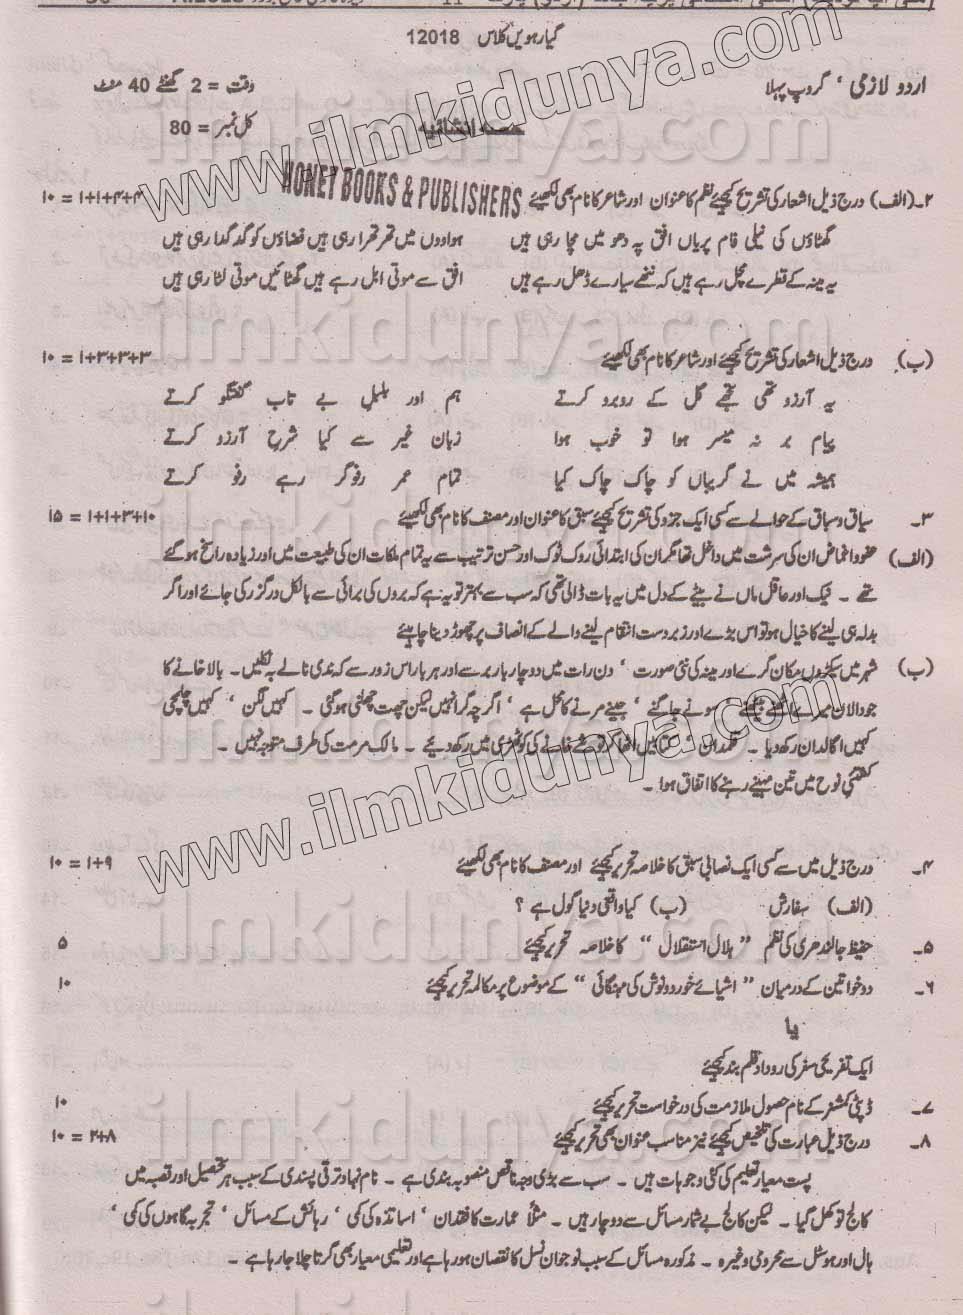 گیارہویں کلاس 12018
اردو لازمی ' گروپ پہلا وقت = 2 گھنٹے 40 منٹ
حصہ انشائیہ کل نمبر = 80
HONEY BOOKS & PUBLISHERS
www.ilmkidunya.com
۲۔(الف) درج ذیل اشعار کی تشریح کیجئے نظم کا عنوان اور شاعر کا نام بھی لکھیئے ۱۰ = ۱+۱+۴+۴
گھٹاؤں کی نیلی فام پریاں افق پہ دھومیں مچا رہی ہیں ہواووں میں تھرتھرا رہی ہیں فضاؤں کو گدگدا رہی ہیں
یہ مینہ کے قطرے مچل رہے ہیں کہ ننھے سیارے ڈھل رہے ہیں افق سے موتی ابل رہے ہیں گھٹائیں موتی لٹا رہی ہیں
(ب) درج ذیل اشعار کی تشریح کیجئے اور شاعر کا نام بھی لکھیئے ۱۰ = ۱+۳+۳+۳
یہ آرزو تھی تجھے گل کے روبرو کرتے ہم اور بلبل بے تاب گفتگو کرتے
پیام بر نہ میسر ہوا تو خوب ہوا زبان غیر سے کیا شرح آرزو کرتے
ہمیشہ میں نے گریباں کو چاک چاک کیا تمام عمر رفوگر رہے رفو کرتے
۳۔ سیاق و سباق کے حوالے سے کسی ایک جزو کی تشریح کیجئے سبق کا عنوان اور مصنف کا نام بھی لکھیئے ۱۵ = ۱+۱+۳+۱۰
(الف) عفو و اغماض ان کی سرشت میں داخل تھا مگر ان کی ابتدائی روک ٹوک اور حسن ترتیب سے یہ تمام ملکات ان کی طبیعت میں اور زیادہ راسخ ہو گئے
تھے ۔ نیک اور عاقل ماں نے بیٹے کے دل میں یہ بات ڈالی تھی کہ سب سے بہتر تو یہ ہے کہ بروں کی برائی سے بالکل درگزر کی جائے اور اگر
بدلہ ہی لینے کا خیال ہو تو اس بڑے اور زبردست انتقام لینے والے کے انصاف پر چھوڑ دینا چاہیئے
(ب) شہر میں سیکڑوں مکان گرے اور مینہ کی نئی صورت ' دن رات میں دو چار بار برسے اور ہر بار اس زور سے کہ ندی نالے بہ نکلیں ۔ بالا خانے کا
جو دالان میرے بیٹھنے ' سونے جاگنے ' جینے مرنے کا محل ہے ' اگرچہ گرا نہیں لیکن چھت چھلنی ہو گئی ۔ کہیں لگن ' کہیں چلمچی
کہیں اگالدان رکھ دیا ۔ قلمدان ' کتابیں اٹھا کر توشے خانے کی کوٹھڑی میں رکھ دیئے ۔ مالک مرمت کی طرف متوجہ نہیں ۔
کشتی نوح میں تین مہینے رہنے کا اتفاق ہوا ۔
۴۔ درج ذیل میں سے کسی ایک نصابی سبق کا خلاصہ تحریر کیجئے اور مصنف کا نام بھی لکھیئے ۱۰ = ۱+۹
(الف) سفارش (ب) کیا واقعی دنیا گول ہے ؟
۵۔ حفیظ جالندھری کی نظم " ہلال استقلال " کا خلاصہ تحریر کیجئے ۵
۶۔ دو خواتین کے درمیان " اشیائے خورد و نوش کی مہنگائی " کے موضوع پر مکالمہ تحریر کیجئے ۱۰
یا
ایک تفریحی سفر کی روداد قلم بند کیجئے
۷۔ ڈپٹی کمشنر کے نام حصول ملازمت کی درخواست تحریر کیجئے ۱۰
۸۔ درج ذیل عبارت کی تلخیص کیجئے نیز مناسب عنوان بھی تحریر کیجئے ۱۰ = ۲+۸
پست معیار تعلیم کی کئی وجوہات ہیں ۔ سب سے بڑی وجہ ناقص منصوبہ بندی ہے ۔ نام نہاد ترقی پسندی کے سبب ہر تحصیل اور قصبہ میں
کالج تو کھل گیا ۔ لیکن کالج بے شمار مسائل سے دوچار ہیں ۔ مثلاً عمارت کا فقدان ' اساتذہ کی کمی ' رہائش کے مسائل ' تجربہ گاہوں کی کمی '
ہال اور ہوسٹل سے محرومی وغیرہ ۔ مذکورہ مسائل کے سبب نوجوان نسل کا نقصان ہو رہا ہے اور تعلیمی معیار بھی گرتا چلا جا رہا ہے ۔
www.ilmkidunya.com